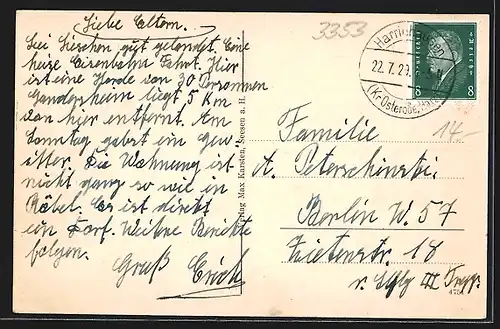 Liebe Eltern.
Bei Lieschen gut gelandet. Eine
heise Eisenbahn Fahrt. Hier
ist eine Horde von 30 Personen
Gandersheim liegt 5 Km
von hier entfernt. Am
Sonntag gabst ein Gew
itter. Die Wohnung ist
nicht ganz so wie in
Röbel. Es ist direkt
ein Dorf. Weitere Berichte
folgen.
Gruß Erich
Verlag Max Karsten, Seesen a. H.
3353
22. 7. 29
(Kr. Osterode, Harz)
8 8
14.-
Familie
A. Peterschinski.
Berlin W. 57
Zietenstr. 18
v. III Trepp.